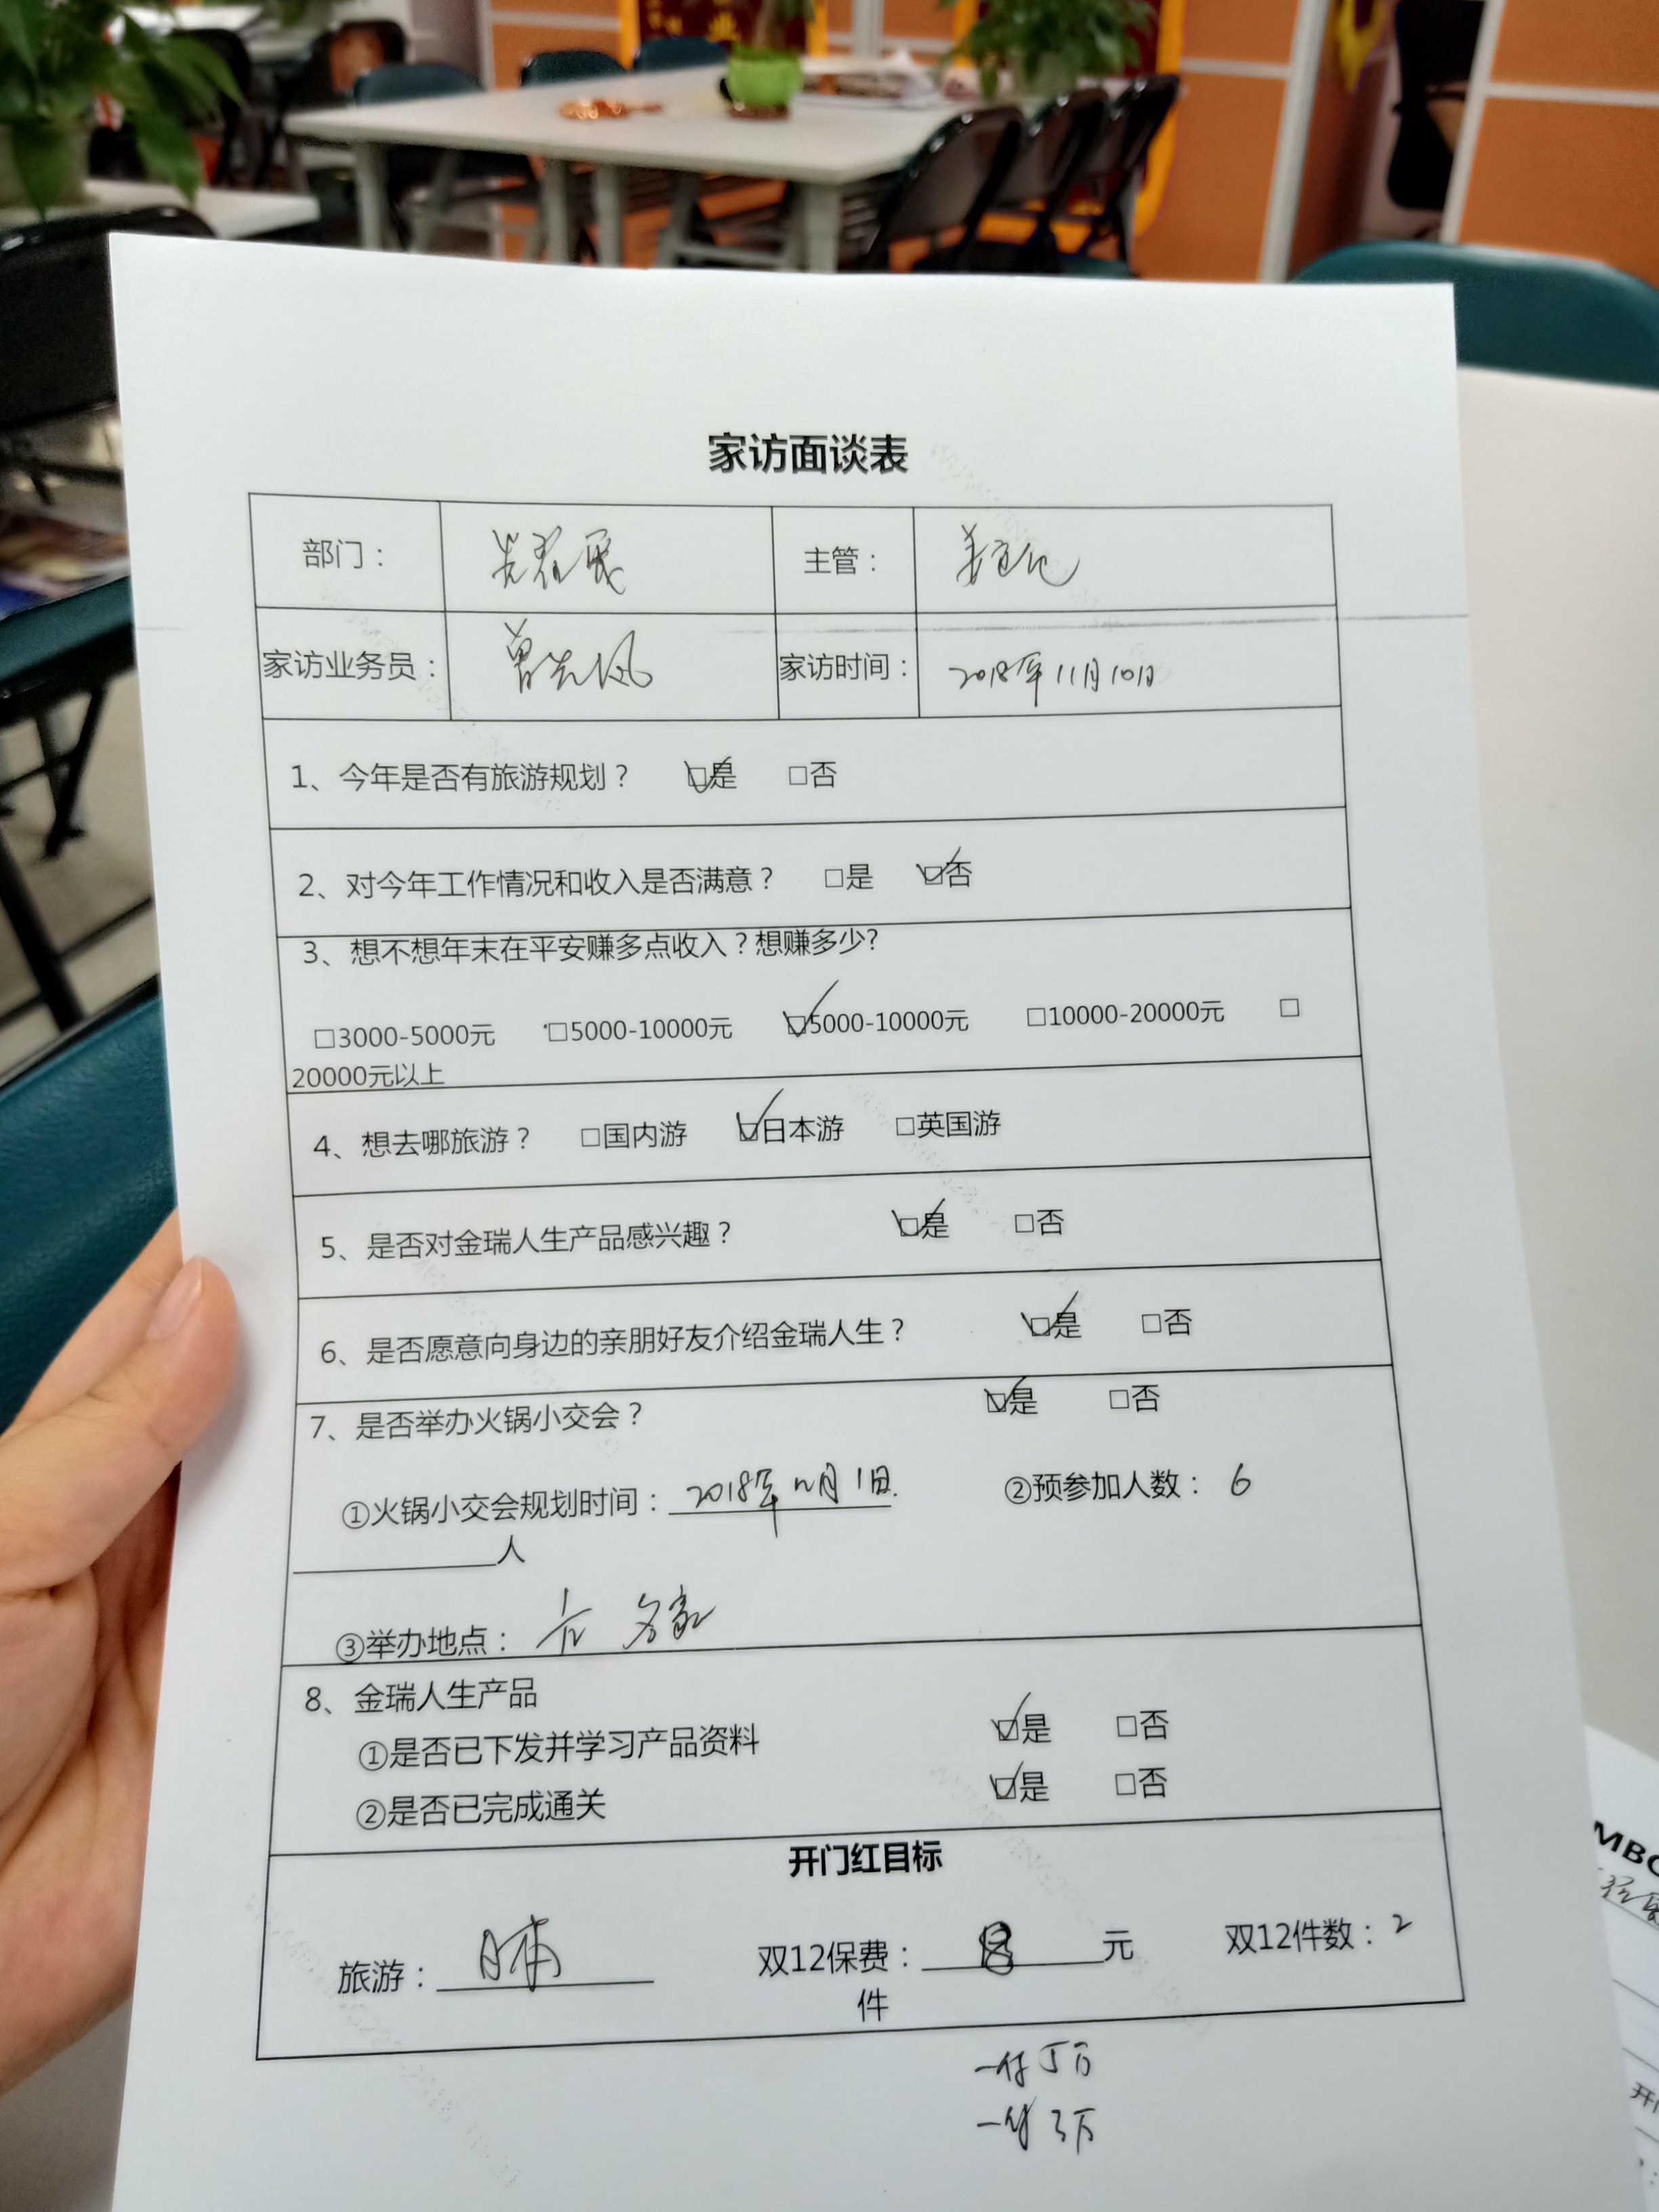 家访面谈表
部门：
主管：
家访业务员：曾先凤
家访时间：2018年11月10日
1、今年是否有旅游规划？ ☑是 □否
2、对今年工作情况和收入是否满意？ □是 ☑否
3、想不想年末在平安赚多点收入？想赚多少?
□3000-5000元 □5000-10000元 ☑5000-10000元 □10000-20000元 □
20000元以上
4、想去哪旅游？ □国内游 ☑日本游 □英国游
5、是否对金瑞人生产品感兴趣？ ☑是 □否
6、是否愿意向身边的亲朋好友介绍金瑞人生？ ☑是 □否
7、是否举办火锅小交会？ ☑是 □否
①火锅小交会规划时间：2018年12月1日. ②预参加人数：6
人
③举办地点：
8、金瑞人生产品
①是否已下发并学习产品资料 ☑是 □否
②是否已完成通关 ☑是 □否
开门红目标
旅游：日本 双12保费：8元 双12件数：2
件
一件5万
一件3万
MBC
开门